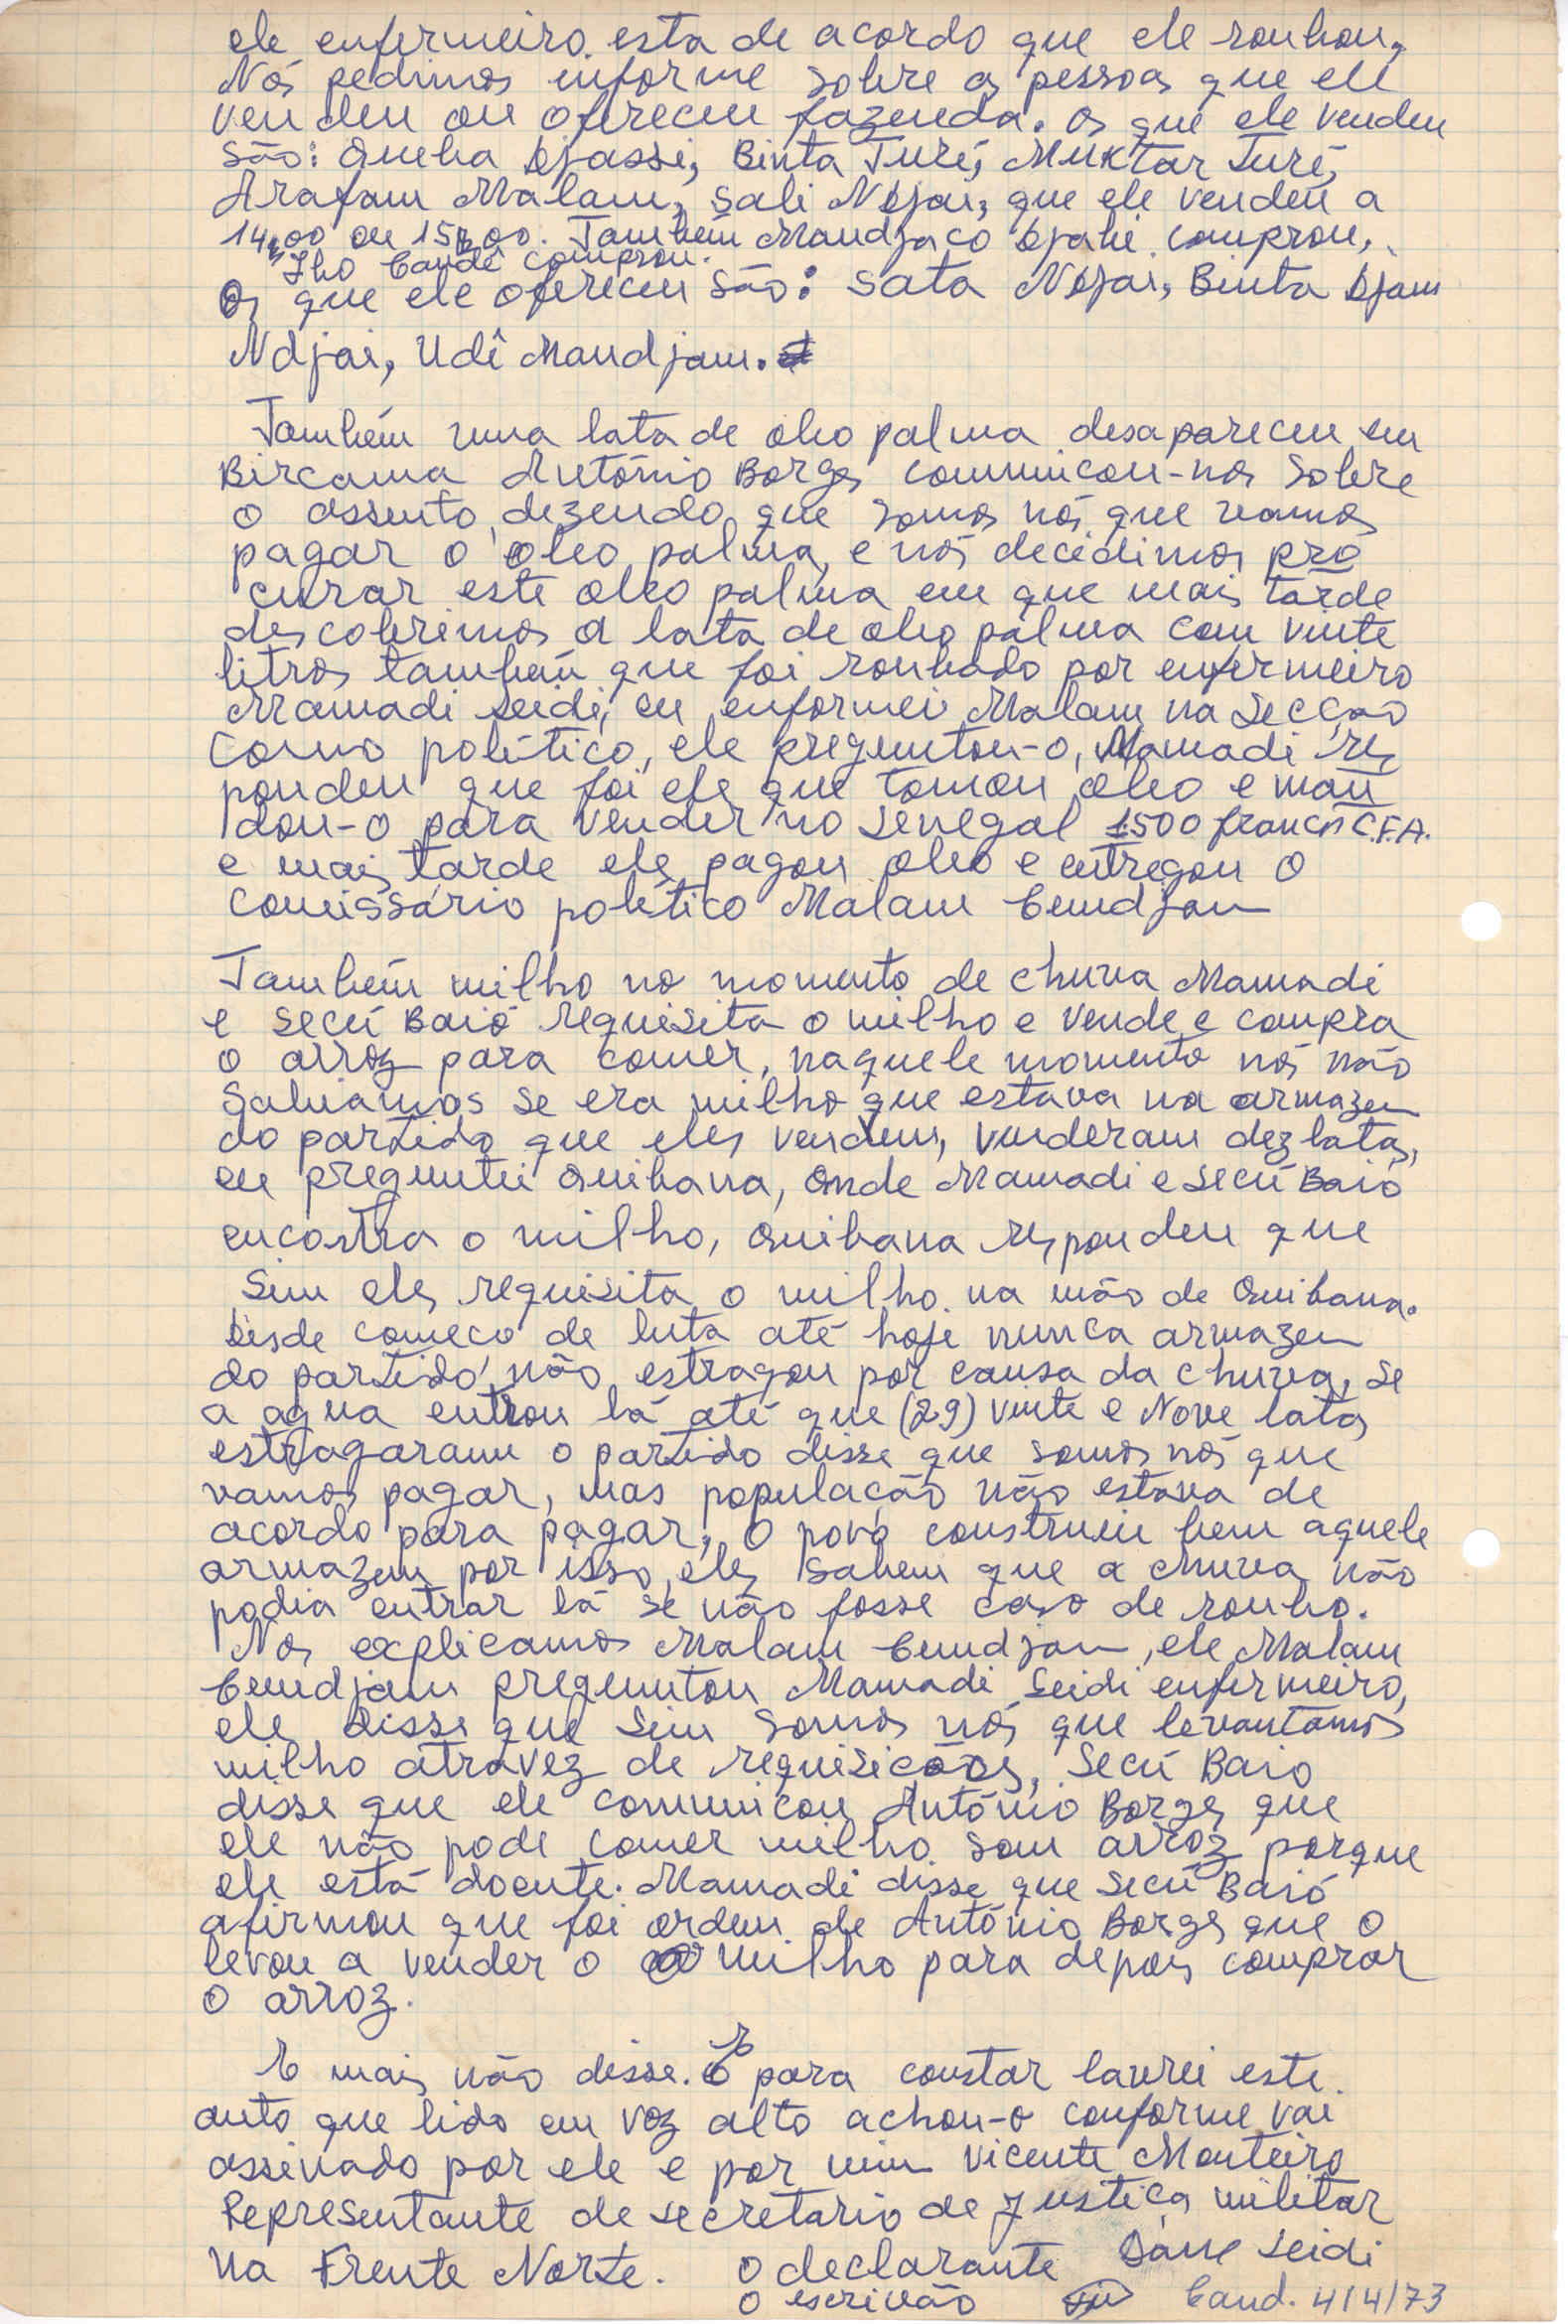 ele enfermeiro esta de acordo que ele roubou,
Nós pedimos informe sobre as pessoas que ele
vendeu ou ofereceu fazenda. Os que ele vendeu
são: Queba Djassi, Binta Turé, Muktar Turé,
Arafam Malam, Sali Ndjai, que ele vendeu a
14,00 ou 15,00. Também Mandjaco Djabi comprou,
Iho Candê comprou.
Os que ele ofereceu são: Sata Ndjai, Binta Djam
Ndjai, Udê Mandjam.
Também uma lata de oleo palma desapareceu em
Bircama António Borges communicou-nos sobre
o assunto, dezendo que somos nós que vamos
pagar o oleo palma, e nós decidimos pro
curar este oleo palma em que mais tarde
descobrimos a lata de oleo palma com vinte
litros também que foi roubado por enfermeiro
Mamadi Seidi, eu enformei Malam na Secção
como político, ele preguntou-o, Mamadi res
pondeu que foi ele que tomou oleo e man
dou-o para vender no Senegal 1500 francos C.F.A.
e mais tarde ele pagou oleo e entregou o
comissário político Malam Cumdjam
Também milho no momento de chuva Mamadi
e Secú Baió requisita o milho e vende e compra
o arroz para comer, naquele momento nós não
sabiamos se era milho que estava na armazem
do partido que eles vendem, venderam dez latas,
eu preguntei Quibana, onde Mamadi e Secú Baió
encontra o milho, Quibana respondeu que
Sim eles requisita o milho na mão de Quibana.
Desde começo de luta até hoje nunca armazem
do partido não estragou por causa da chuva, se
a agua entrou lá até que (29) vinte e Nove latas
estragaram o partido disse que somos nós que
vamos pagar, mas população não estava de
acordo para pagar, o povo construiu bem aquele
armazem por isso eles sabem que a chuva não
podia entrar lá se não fosse caso de roubo.
Nós explicamos Malam Cumdjam, ele Malam
Cumdjam preguntou Mamadi Seidi enfermeiro,
ele disse que sim somos nós que levantamos
milho atravez de requisições, Secú Baio
disse que ele comunicou António Borges que
ele não pode comer milho som arroz porque
ele está doente. Mamadi disse que Secú Baió
afirmou que foi ordem de António Borges que o
levou a vender o milho para depois comprar
o arroz.
E mais não disse. E para constar lavrei este
auto que lido em voz alto achou-o conforme vai
assinado por ele e por mim Vicente Monteiro
Representante de secretario de Justiça militar
na Frente Norte. O declarante Sáne Seidi
O escrivão Cand. 4/4/73